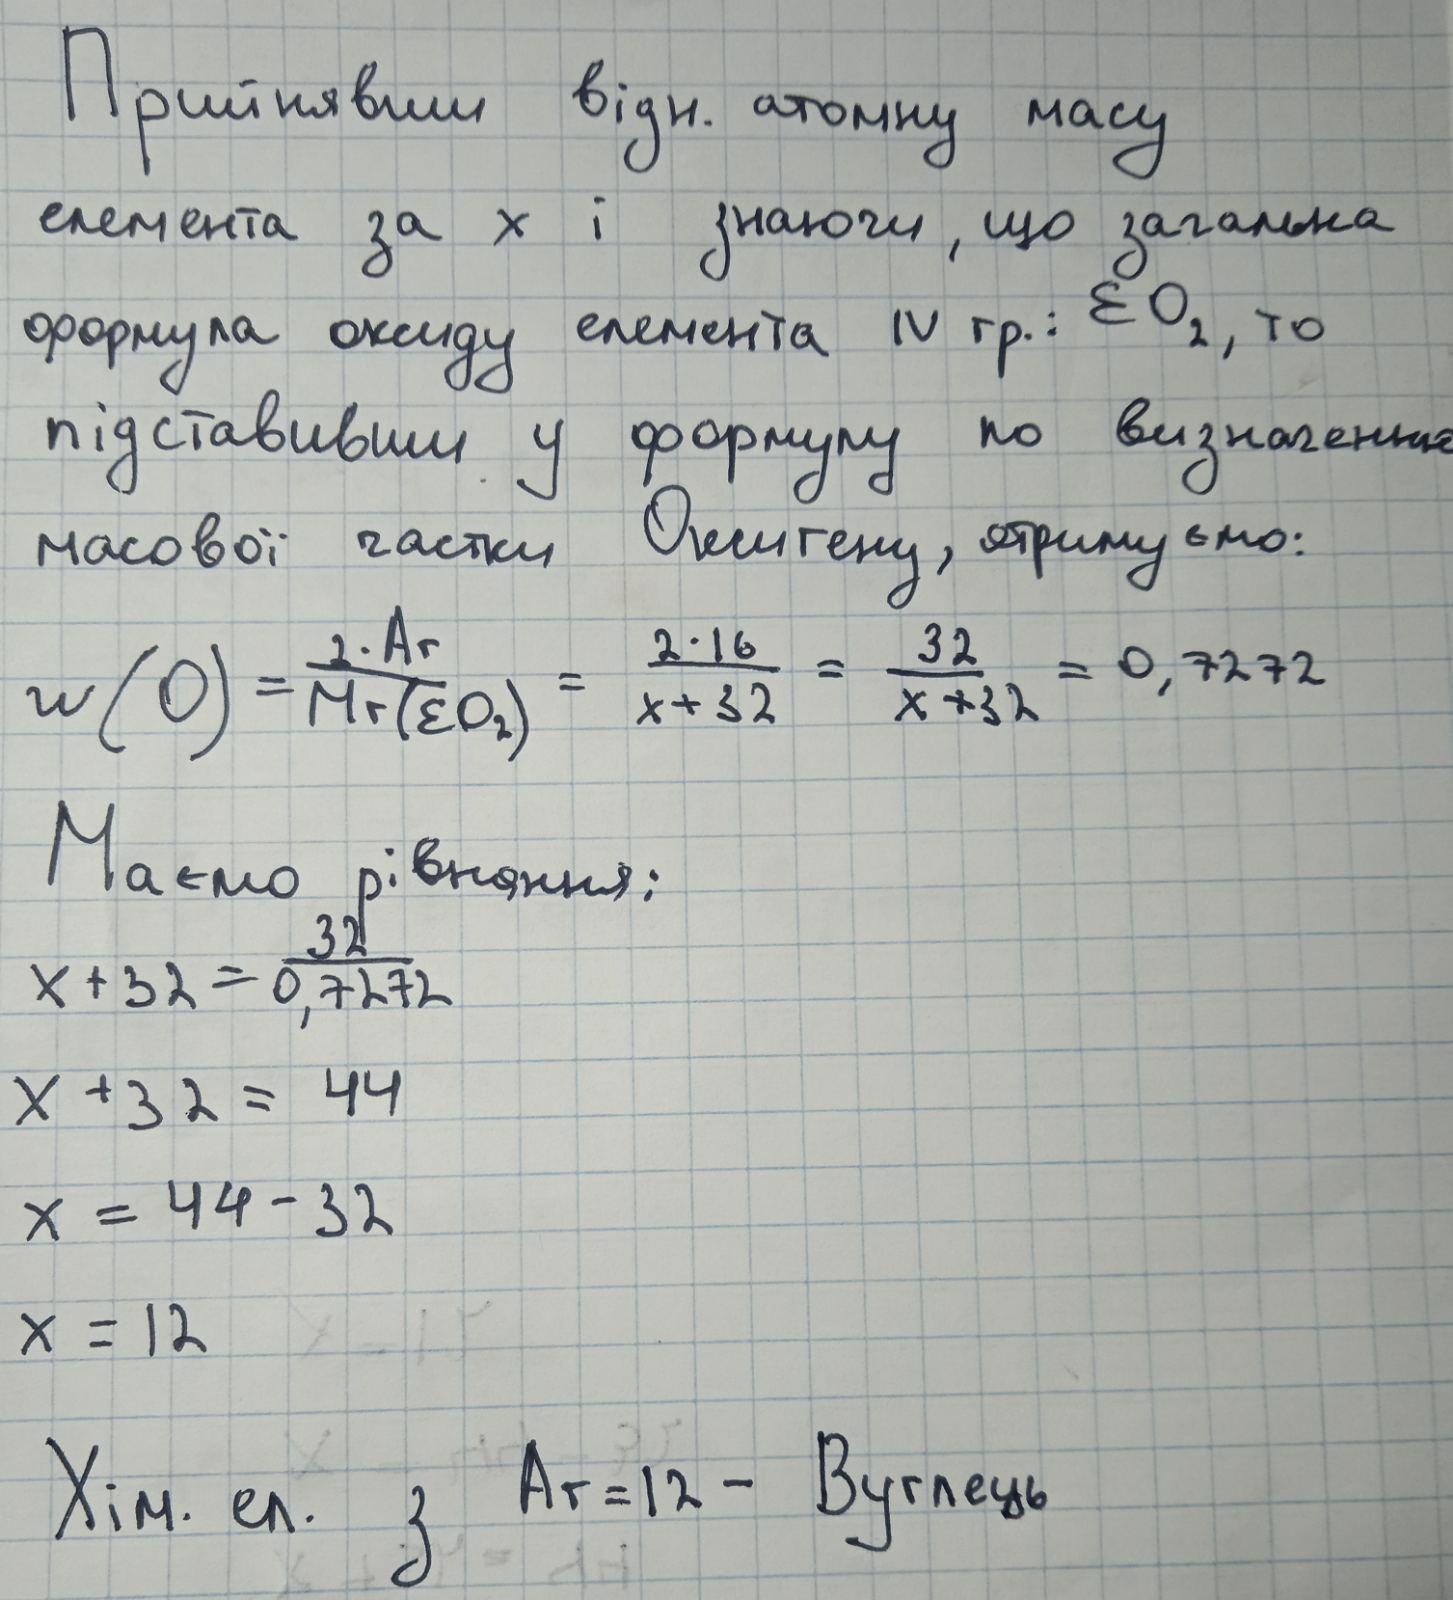 Прийнявши відн. атомну масу
елемента за x і знаючи, що загальна
формула оксиду елемента IV гр.: ЕO₂, то
підставивши у формулу по визначенню
масової частки Оксигену, отримуємо:
w(O) = 2·Ar / Mr(ЕO₂) = 2·16 / x+32 = 32 / x+32 = 0,7272
Маємо рівняння:
x+32 = 32 / 0,7272
x+32 = 44
x = 44-32
x = 12
Хім. ел. з Ar=12 - Вуглець